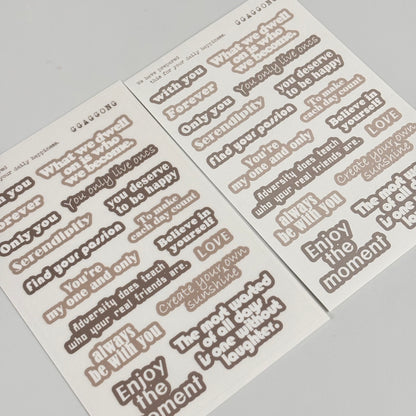 We have prepared
this for your daily happiness.
GGAGGONG
with you
What we dwell
on is who
we become.
Forever
You only live oncs
Only you
you deserve
to be happy
Serendipity
To make
each day count
find your passion
Believe in
yourself
You're
my one and only
LOVE
Adversity does teach
who your real friends are.
Create your own
sunshine
always
be with you
The most wasted
of all days
is one without
Enjoy
the
moment
pared
your daily happiness.
GGAGGONG
you
What we dwell
on is who
we become.
Forever
You only live oncs
Only you
you deserve
to be happy
Serendipity
To make
each day count
find your passion
Believe in
yourself
You're
my one and only
LOVE
Adversity does teach
who your real friends are.
Create your own
sunshine
always
be with you
The most wasted
of all days
is one without
laughter.
Enjoy
the
moment